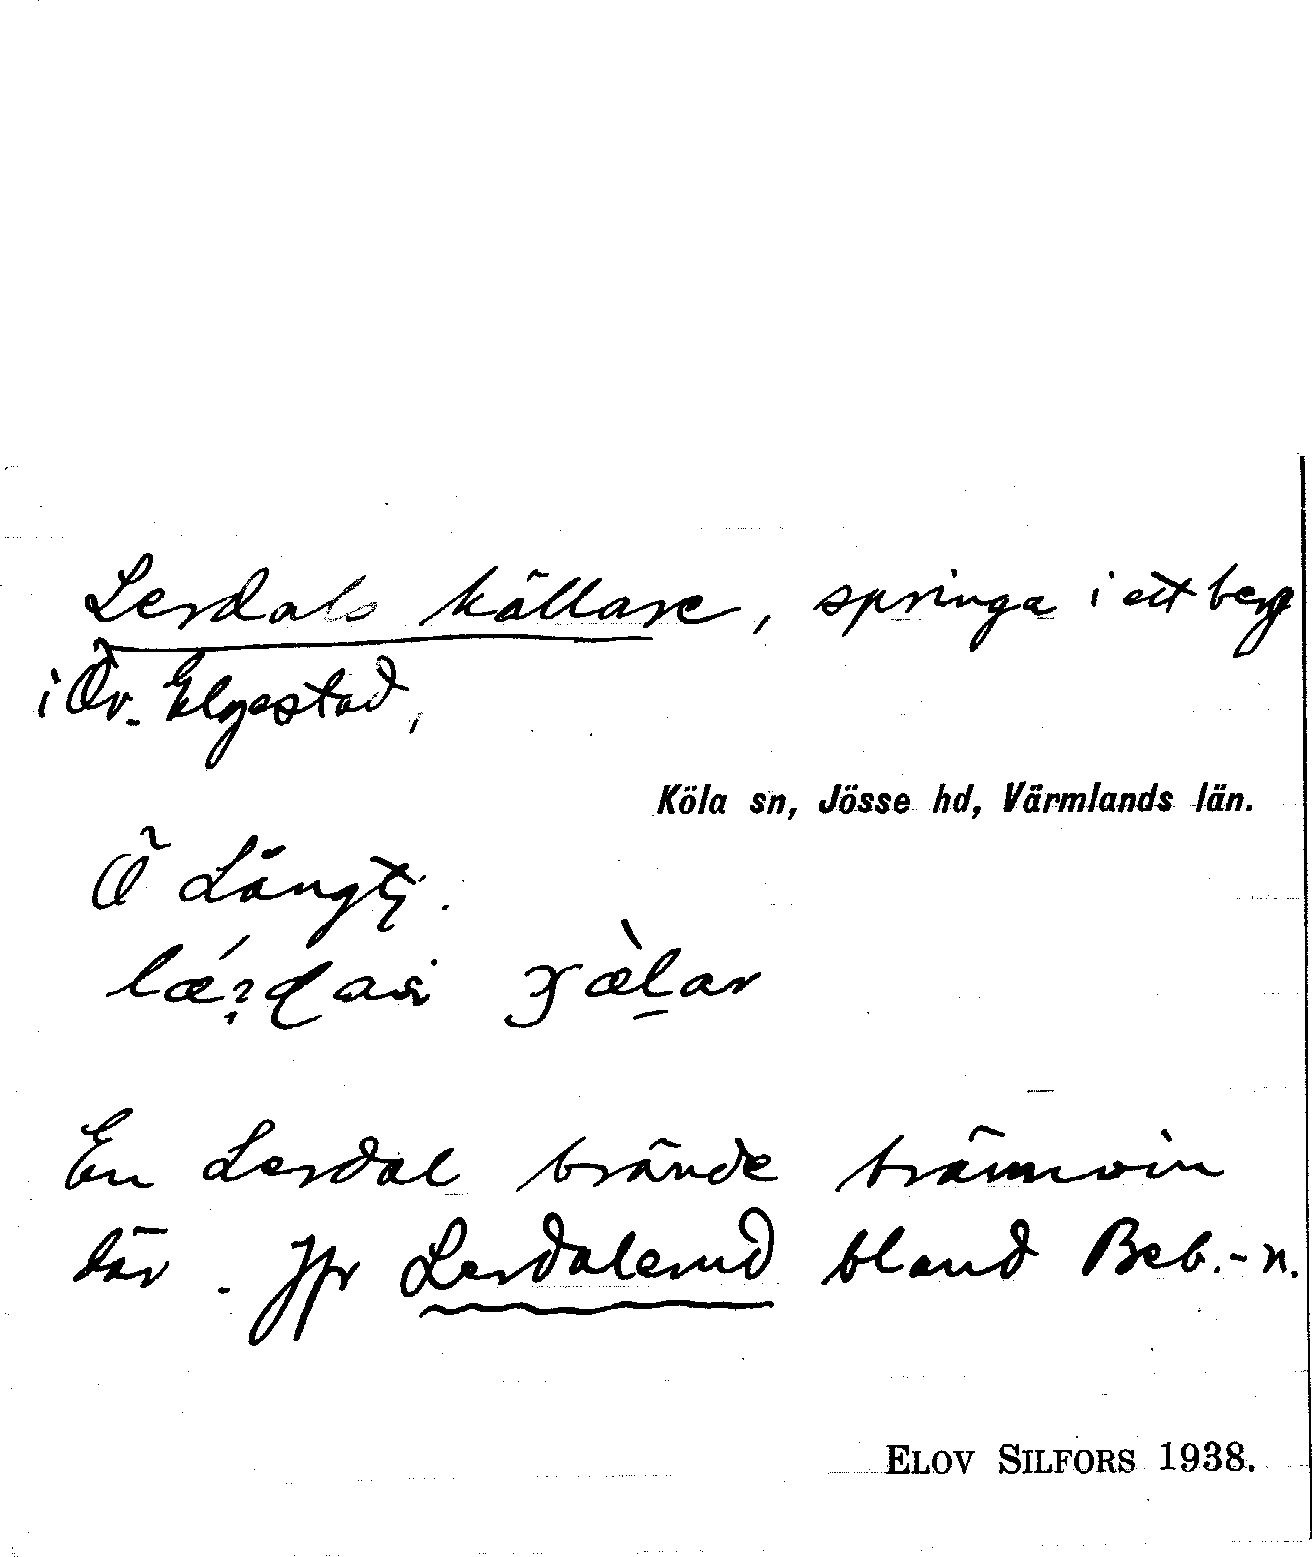 Lerdals källare, springa i ett berg
i Öv. Elgestad,
Köla sn, Jösse hd, Värmlands län.
Ö Längtj.
En Lerdal brände brännvin
där. Jfr Lerdalerud bland Beb.-n.
ELOV SILFORS 1938.